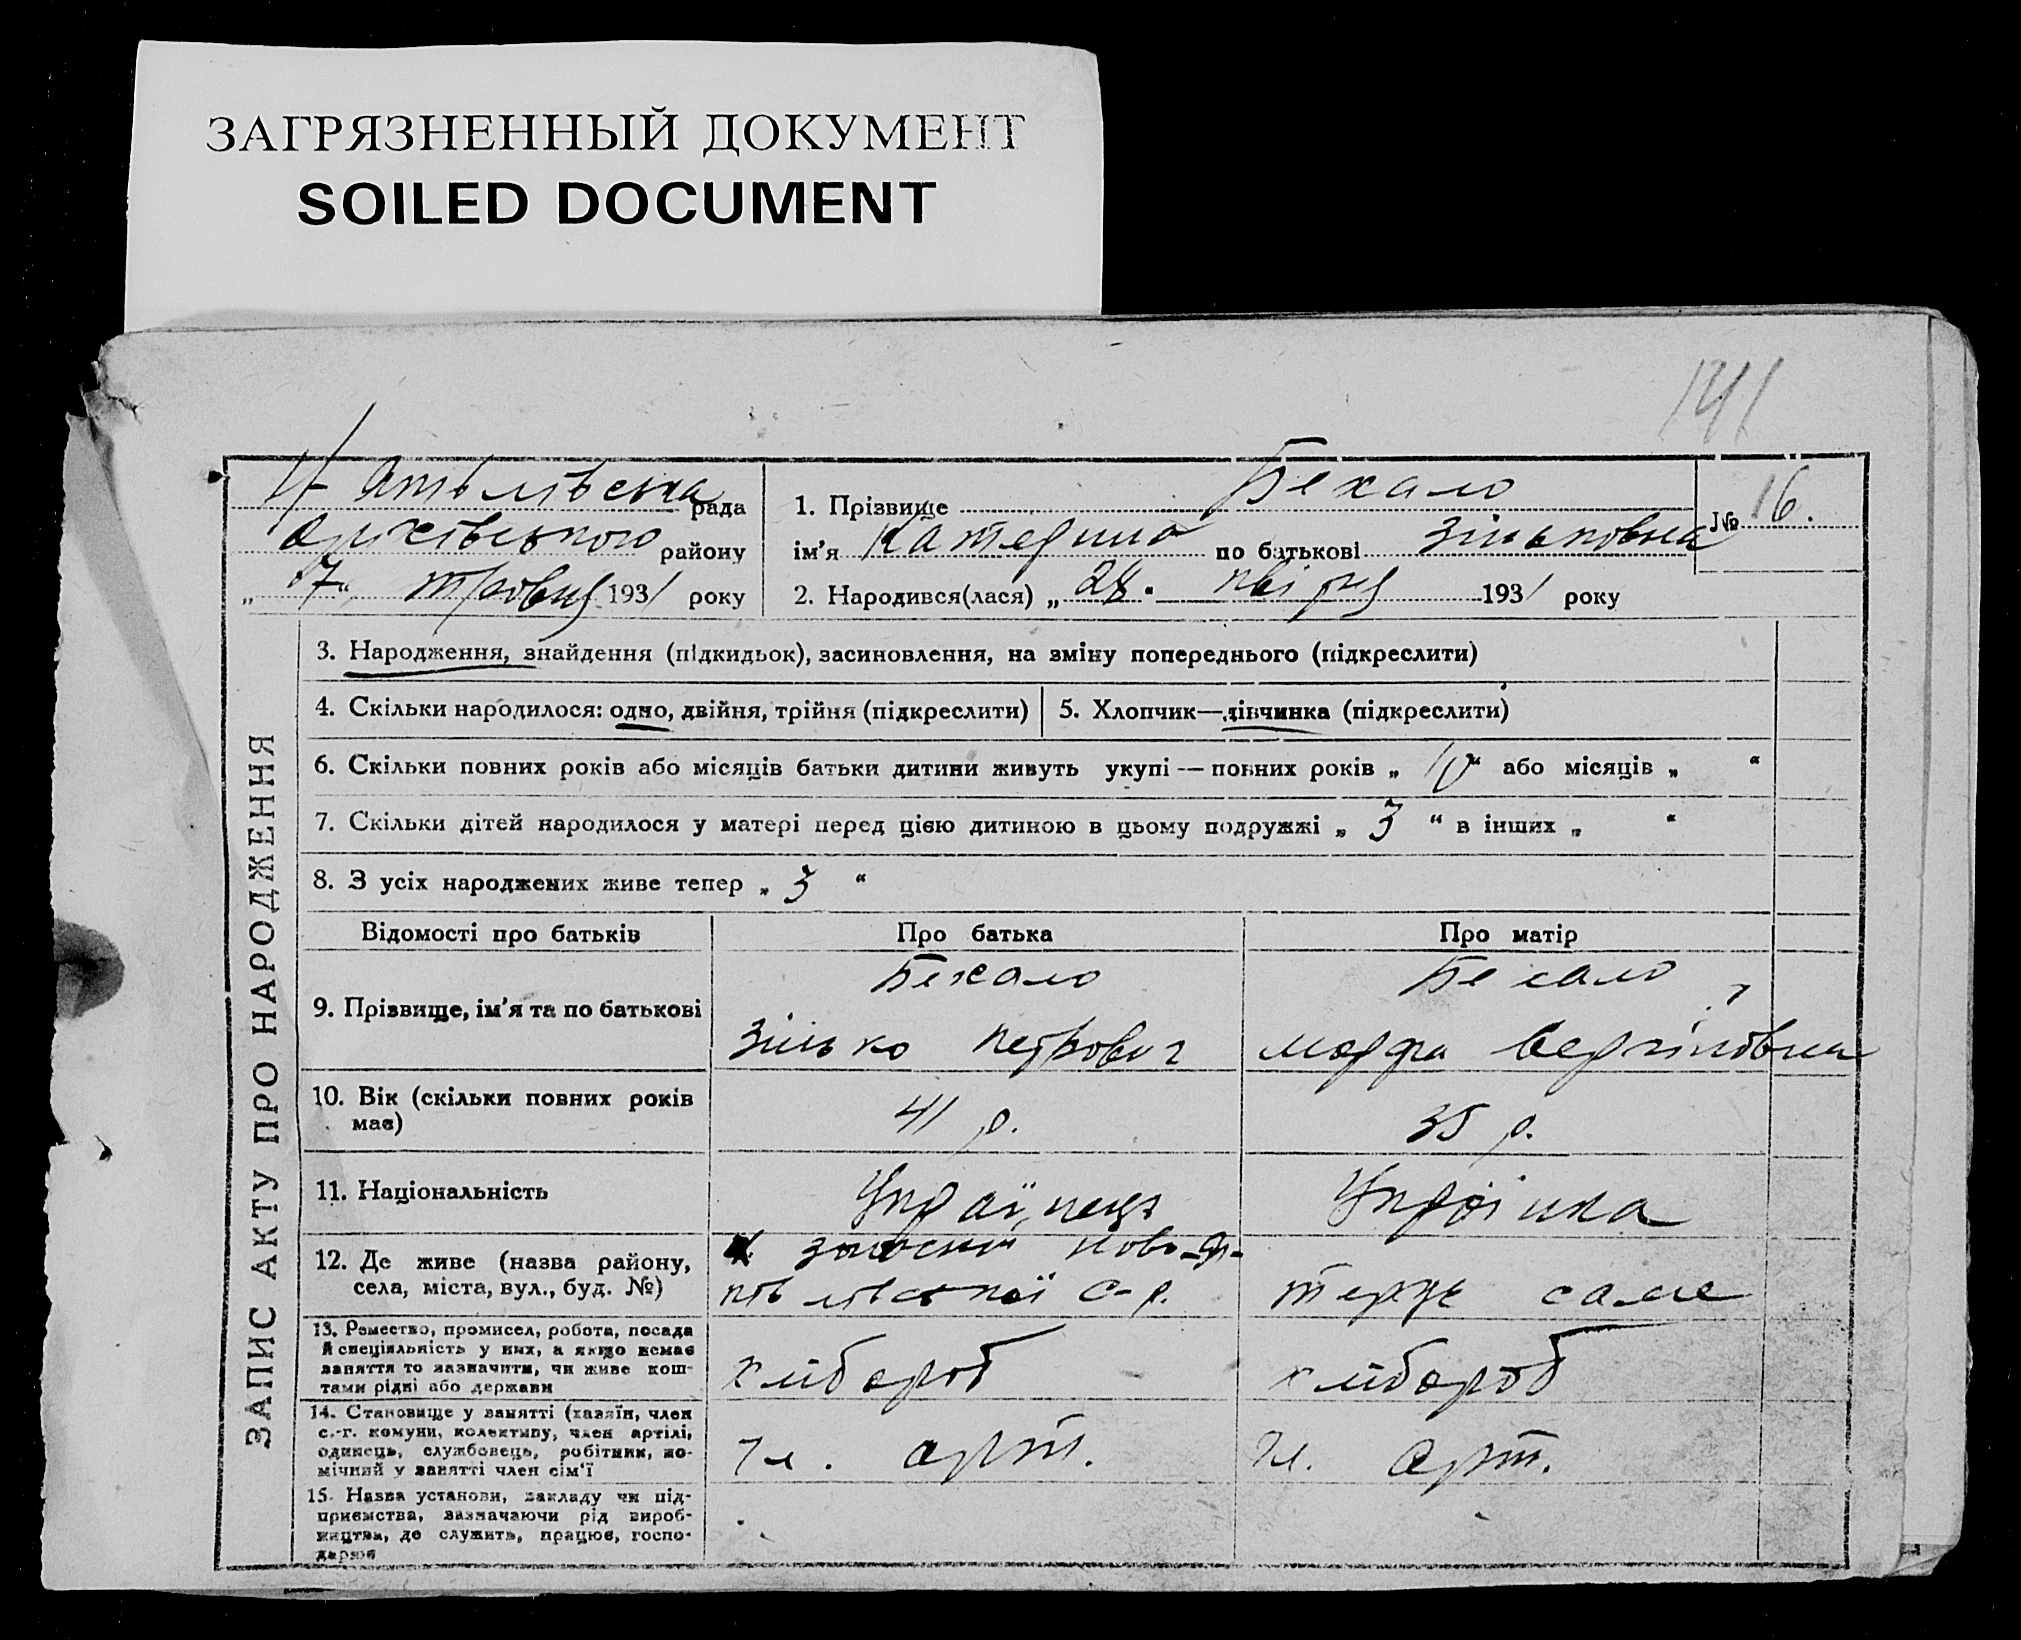 ЗАГРЯЗНЕННЫЙ ДОКУМЕНТ
SOILED DOCUMENT
141
рада
району
„17“ травня 1931 року
1. Прізвище Бехало
ім'я Катерина по батькові Зіньковна
2. Народився(лася) „28" квітня 1931 року
№ 16.
ЗАПИС АКТУ ПРО НАРОДЖЕННЯ
3. Народження, знайдення (підкидьок), засиновлення, на зміну попереднього (підкреслити)
4. Скільки народилося: одно, двійня, трійня (підкреслити)
5. Хлопчик—дівчинка (підкреслити)
6. Скільки повних років або місяців батьки дитини живуть укупі — повних років „ 10 “ або місяців „ “
7. Скільки дітей народилося у матері перед цією дитиною в цьому подружжі „ 3 “ в інших „ “
8. З усіх народжених живе тепер „ 3 “
Відомості про батьків
Про батька
Про матір
9. Прізвище, ім'я та по батькові
Бехало
Зінько Петрович
Бехало
Марфа
10. Вік (скільки повних років має)
41 р.
35 р.
11. Національність
Українець
Українка
12. Де живе (назва району,
села, міста, вул., буд. №)
с-р.
теж саме
13. Ремество, промисел, робота, посада
й спеціяльність у них, а якщо немає
заняття то зазначити, чи живе кош-
тами рідні або держави
хлібороб
хлібороб
14. Становище у занятті (хазяїн, член
с.-г. комуни, колективу, член артілі,
одинець, службовець, робітник, по-
мічний у занятті член сім'ї
чл. арт.
чл. арт.
15. Назва установи, закладу чи під-
приємства, зазначаючи рід вироб-
ництва, де служить, працює, госпо-
дарює